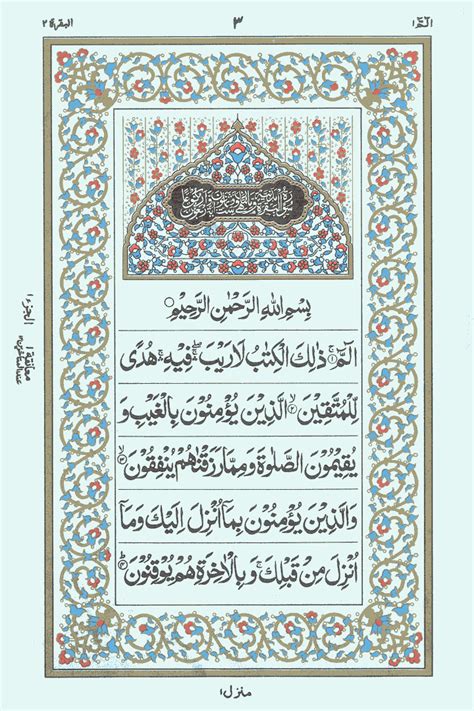 الٓمّٓ ١
٣
البقرة ٢
بِسْمِ اللّٰهِ الرَّحْمٰنِ الرَّحِيْمِ
الٓمّٓ ۚ﴿۱﴾ ذٰلِكَ الْكِتٰبُ لَا رَيْبَ ۛۖ فِيْهِ ۛۚ هُدًى
لِّلْمُتَّقِيْنَ ۙ﴿۲﴾ الَّذِيْنَ يُؤْمِنُوْنَ بِالْغَيْبِ وَ
يُقِيْمُوْنَ الصَّلٰوةَ وَمِمَّا رَزَقْنٰهُمْ يُنْفِقُوْنَ ۙ﴿۳﴾
وَالَّذِيْنَ يُؤْمِنُوْنَ بِمَاۤ اُنْزِلَ اِلَيْكَ وَمَاۤ
اُنْزِلَ مِنْ قَبْلِكَ ۚ وَبِالْاٰخِرَةِ هُمْ يُوْقِنُوْنَ ؕ﴿۴﴾
الجزء ١
معانقة ١
منزل ١